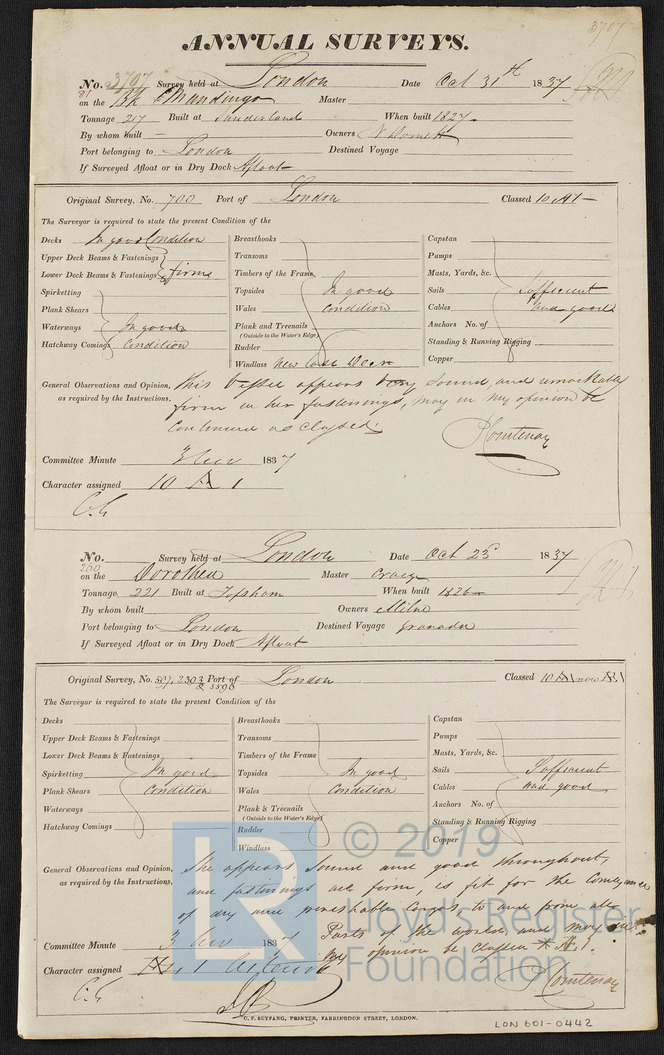 3707
ANNUAL SURVEYS.
No. 3707 Survey held at London Date Oct 31st 1837
on the Bk Mandingo Master
Tonnage 217 Built at Sunderland When built 1827
By whom built — Owners
Port belonging to London Destined Voyage
If Surveyed Afloat or in Dry Dock Afloat
Original Survey, No. 700 Port of London Classed 10 A1
The Surveyor is required to state the present Condition of the
Decks In good Condition
Upper Deck Beams & Fastenings
Lower Deck Beams & Fastenings firm
Spirketting
Plank Shears
Waterways In good
Hatchway Comings Condition
Breasthooks
Transoms
Timbers of the Frame
Topsides In good
Wales Condition
Plank and Treenails
(Outside to the Water's Edge)
Rudder
Windlass New last Year
Capstan
Pumps
Masts, Yards, &c.
Sails Sufficient
Cables and good
Anchors No. of
Standing & Running Rigging
Copper
General Observations and Opinion, This Vessel appears very sound, and remarkably
as required by the Instructions. firm in her fastenings, may in my opinion be
continued as classed.
P Courtenay
Committee Minute 3 Nov 1837
Character assigned 10 A 1
C.G
No. Survey held at London Date Oct 23d 1837
260
on the Dorothea Master Craig
Tonnage 221 Built at Topsham When built 1826
By whom built Owners Milne
Port belonging to London Destined Voyage Granada
If Surveyed Afloat or in Dry Dock Afloat
Original Survey, No. 507, 2303 Port of London Classed 10 A1 now Æ1
& 3596
The Surveyor is required to state the present Condition of the
Decks
Upper Deck Beams & Fastenings
Lower Deck Beams & Fastenings
Spirketting In good
Plank Shears Condition
Waterways
Hatchway Comings
Breasthooks
Transoms
Timbers of the Frame
Topsides In good
Wales Condition
Plank & Treenails
(Outside to the Water's Edge)
Rudder
Windlass
Capstan
Pumps
Masts, Yards, &c.
Sails Sufficient
Cables and good
Anchors No. of
Standing & Running Rigging
Copper
General Observations and Opinion, She appears sound and good throughout,
as required by the Instructions. and fastenings all firm, is fit for the Conveyance
of dry and perishable Cargos, to and from all
Parts of the world, and may in
Committee Minute 3 Nov 1837 my opinion be classed * A.1.
Character assigned
P Courtenay
C.G
C. F. SEYFANG, PRINTER, FARRINGDON STREET, LONDON.
LON 601-0442
LR
© 2019
Lloyd's Register
Foundation